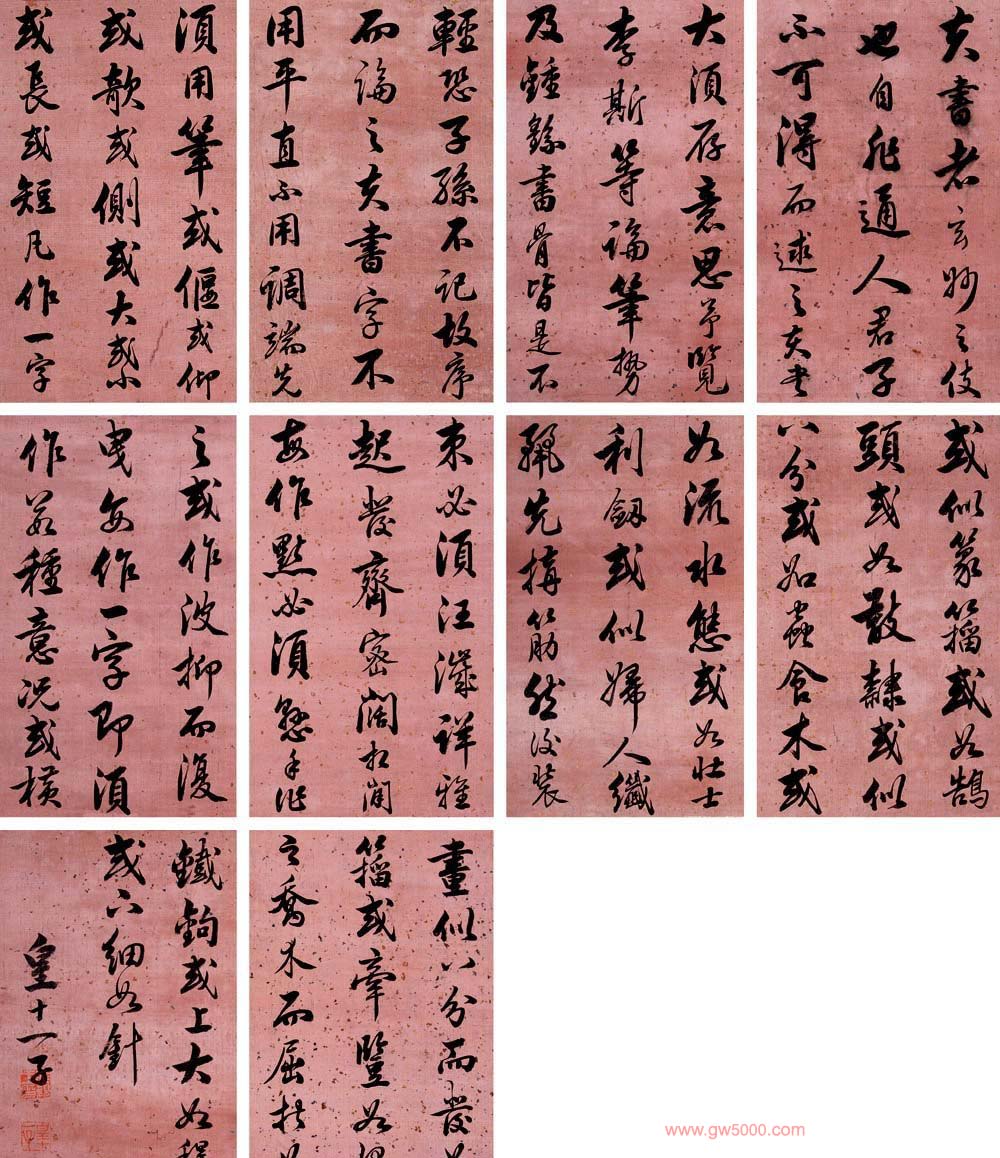 夫書者玄妙之伎
也自非通人君子
不可得而述之夫書
大須存意思予覽
李斯等論筆勢
及鍾繇書骨皆是不
輕恐子孫不記故序
而論之夫書字不
用平直不用調端先
須用筆或偃或仰
或欹或側或大或小
或長或短凡作一字
或似篆籀或如鵠
頭或如散隸或似
八分或如蟲食木或
如流水態或如壯士
利劔或似婦人纖
麗先搆筋然後裝
束必須汪濊詳雅
起發齊密闊相間
每作點必須懸手作
之或作波抑而復
曳每作一字即須
作數種意况或橫
畫似八分而發
籀或牽豎如
之喬木而屈折
鐵鉤或上大如
或下細如針
皇十一子
www.gw5000.com